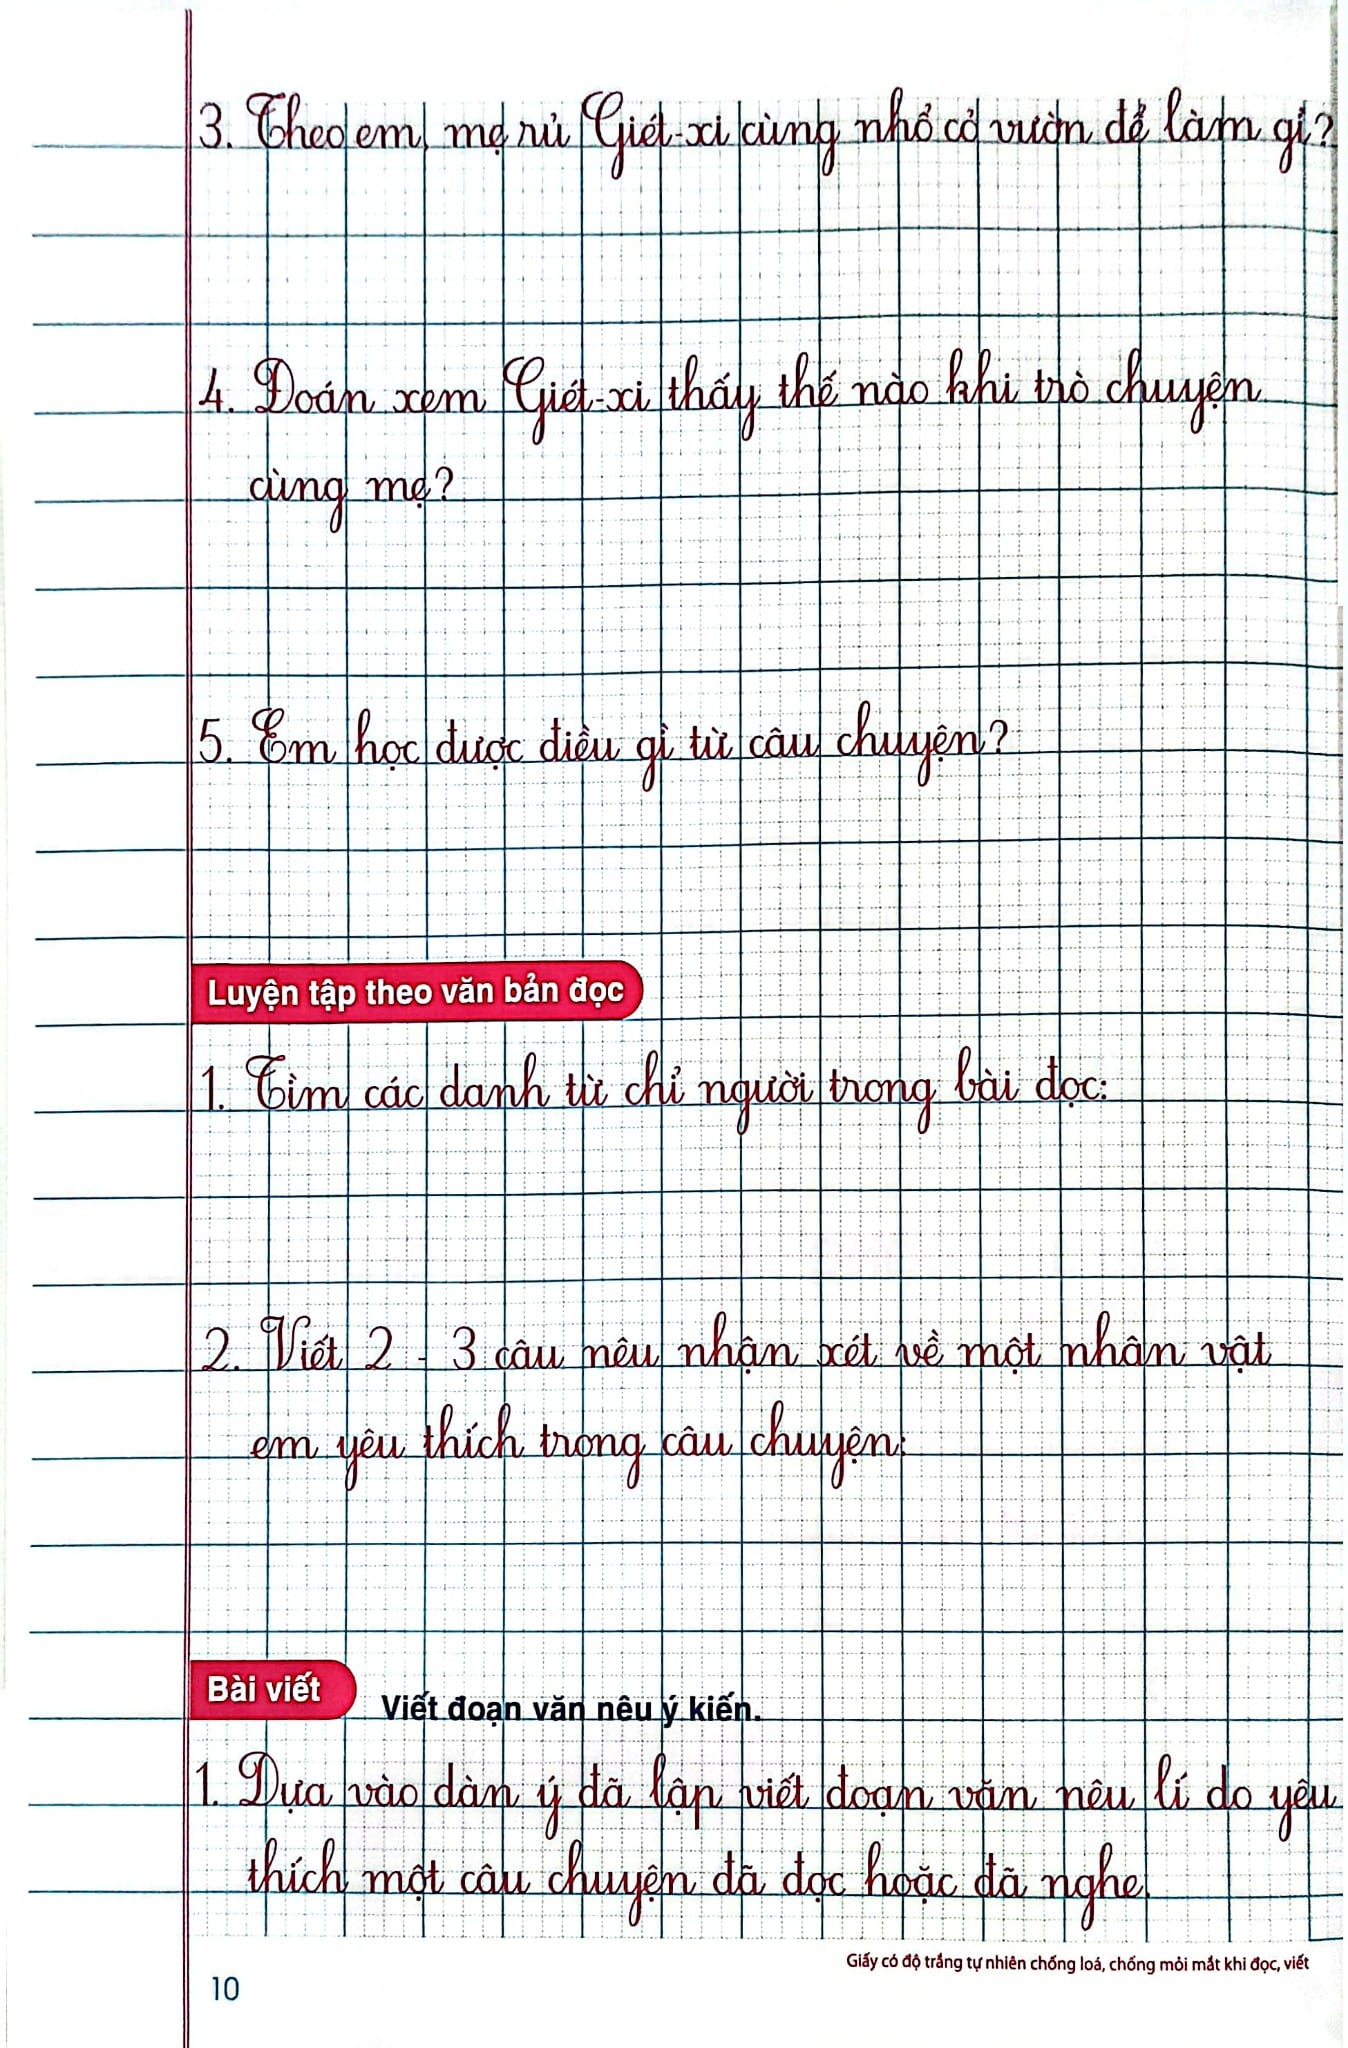 3. Theo em, mẹ rủ Giét-xi cùng nhổ cỏ vườn để làm gì?
4. Đoán xem Giét-xi thấy thế nào khi trò chuyện
cùng mẹ?
5. Em học được điều gì từ câu chuyện?
Luyện tập theo văn bản đọc
1. Tìm các danh từ chỉ người trong bài đọc:
2. Viết 2 - 3 câu nêu nhận xét về một nhân vật
em yêu thích trong câu chuyện:
Bài viết Viết đoạn văn nêu ý kiến.
1. Dựa vào dàn ý đã lập viết đoạn văn nêu lí do yêu
thích một câu chuyện đã đọc hoặc đã nghe.
Giấy có độ trắng tự nhiên chống loá, chống mỏi mắt khi đọc, viết
10